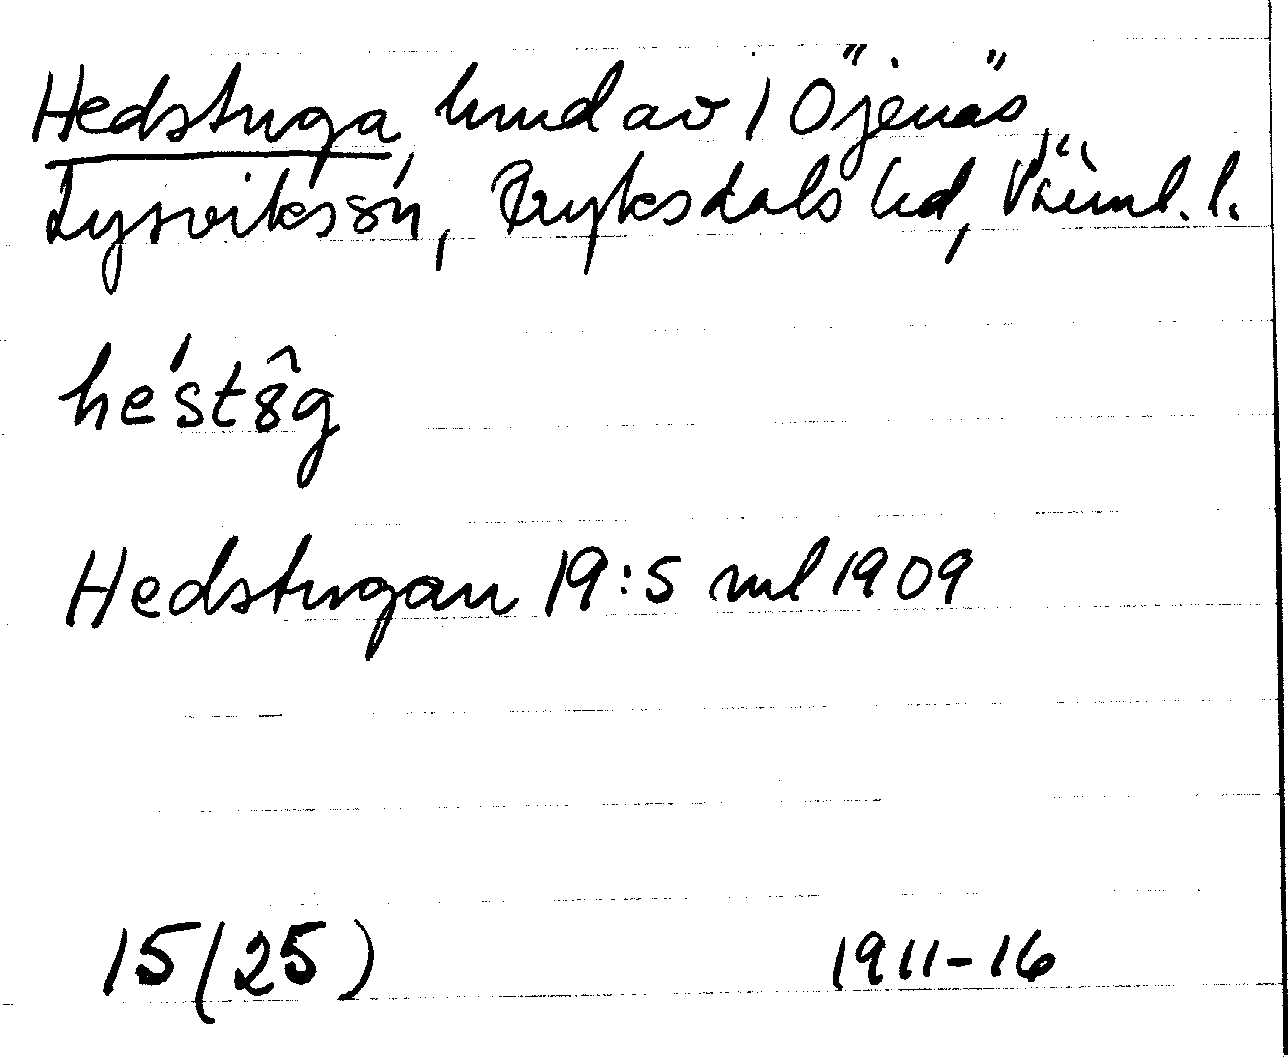 Hedstuga, hmd av 1 Öjenäs,
Lysviks sn, Fryksdals hd, Värml. l.
he´st8̂g
Hedstugan 19:5 ml 1909
15(25) 1911-16